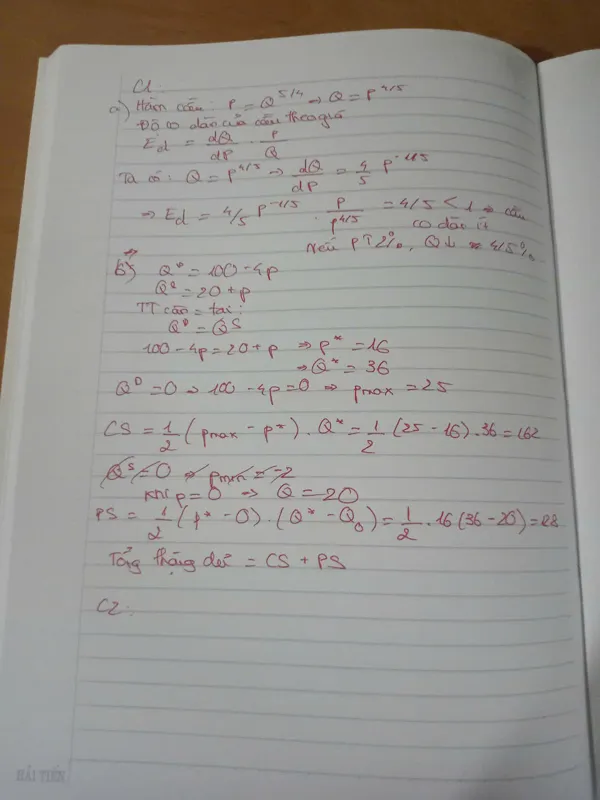 C1:
a) Hàm cầu: P = Q^5/4 => Q = P^4/5
Độ co dãn của cầu theo giá
Ed = dQ/dP . P/Q
Ta có: Q = P^4/5 => dQ/dP = 4/5 P^-1/5
=> Ed = 4/5 P^-1/5 . P/P^4/5 = 4/5 < 1 => cầu
co dãn ít
Nếu P↑2%, Q↓ 4/5%
b) Q^D = 100 - 4p
Q^S = 20 + p
TT cân = tại:
Q^D = Q^S
100 - 4p = 20 + p => p* = 16
=> Q* = 36
Q^D = 0 => 100 - 4p = 0 => pmax = 25
CS = 1/2 (pmax - p*) . Q* = 1/2 (25 - 16) . 36 = 162
Q^S = 0 => pmin = -2
Khi p = 0 => Q = 20
PS = 1/2 (p* - 0) . (Q* - Q0) = 1/2 . 16 (36 - 20) = 28
Tổng thặng dư = CS + PS
C2:
HẢI TIẾN